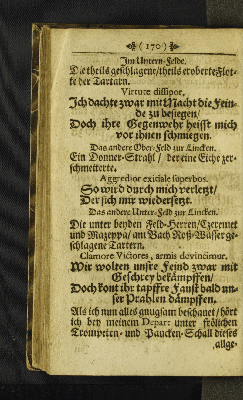 (170)
Im Untern-Felde.
Die theils geschlagene/theils eroberte Flot-
te der Tartarn.
Virtute dissipor.
Ich dachte zwar mit Macht die Fein-
de zu besiegen/
Doch ihre Gegenwehr heisst mich
vor ihnen schmiegen.
Das andere Ober-Feld zur Lincken.
Ein Donner-Strahl / der eine Eiche zer-
schmetterte.
Aggredior exitiale superbos.
So wird durch mich verletzt/
Der sich mir wiedersetzt.
Das andere Unter-Feld zur Lincken.
Die unter beyden Feld-Herren/Czeremet
und Mazeppa/ am Bach Roß-Wasser ge-
schlagene Tartern.
Clamore Victores, armis devincimur.
Wir wolten unsre Feind zwar mit
Geschrey bekämpffen/
Doch kont ihr tapffre Faust bald un-
ser Prahlen dämpffen.
Als ich nun alles gnugsam beschauet / hört
ich bey meinem Depart unter frölichen
Trompeten- und Paucken-Schall dieses
allge-